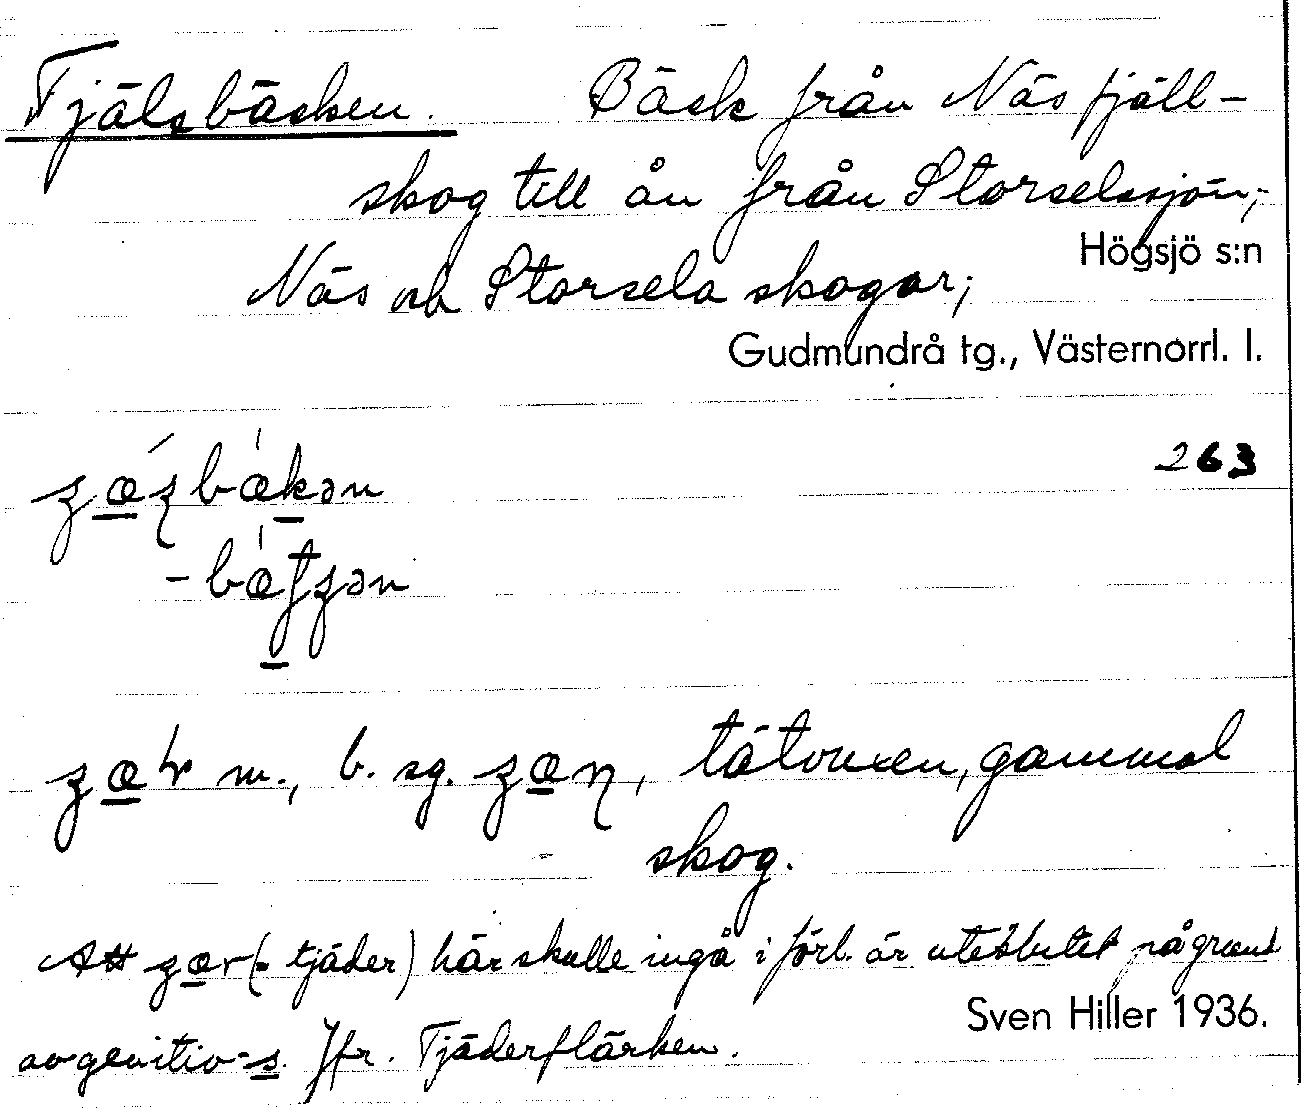 Tjälsbäcken. Bäck från Näs fjäll-
skog till ån från Storselssjön;
Högsjö s:n
Näs och Storsela skogar;
Gudmundrå tg., Västernorrl. l.
263
m., b. sg. tätvuxen, gammal
skog.
Att (= tjäder) här skulle ingå i förl. är uteslutet på grund
Sven Hiller 1936.
av genitiv-s. Jfr. Tjäderflärken.